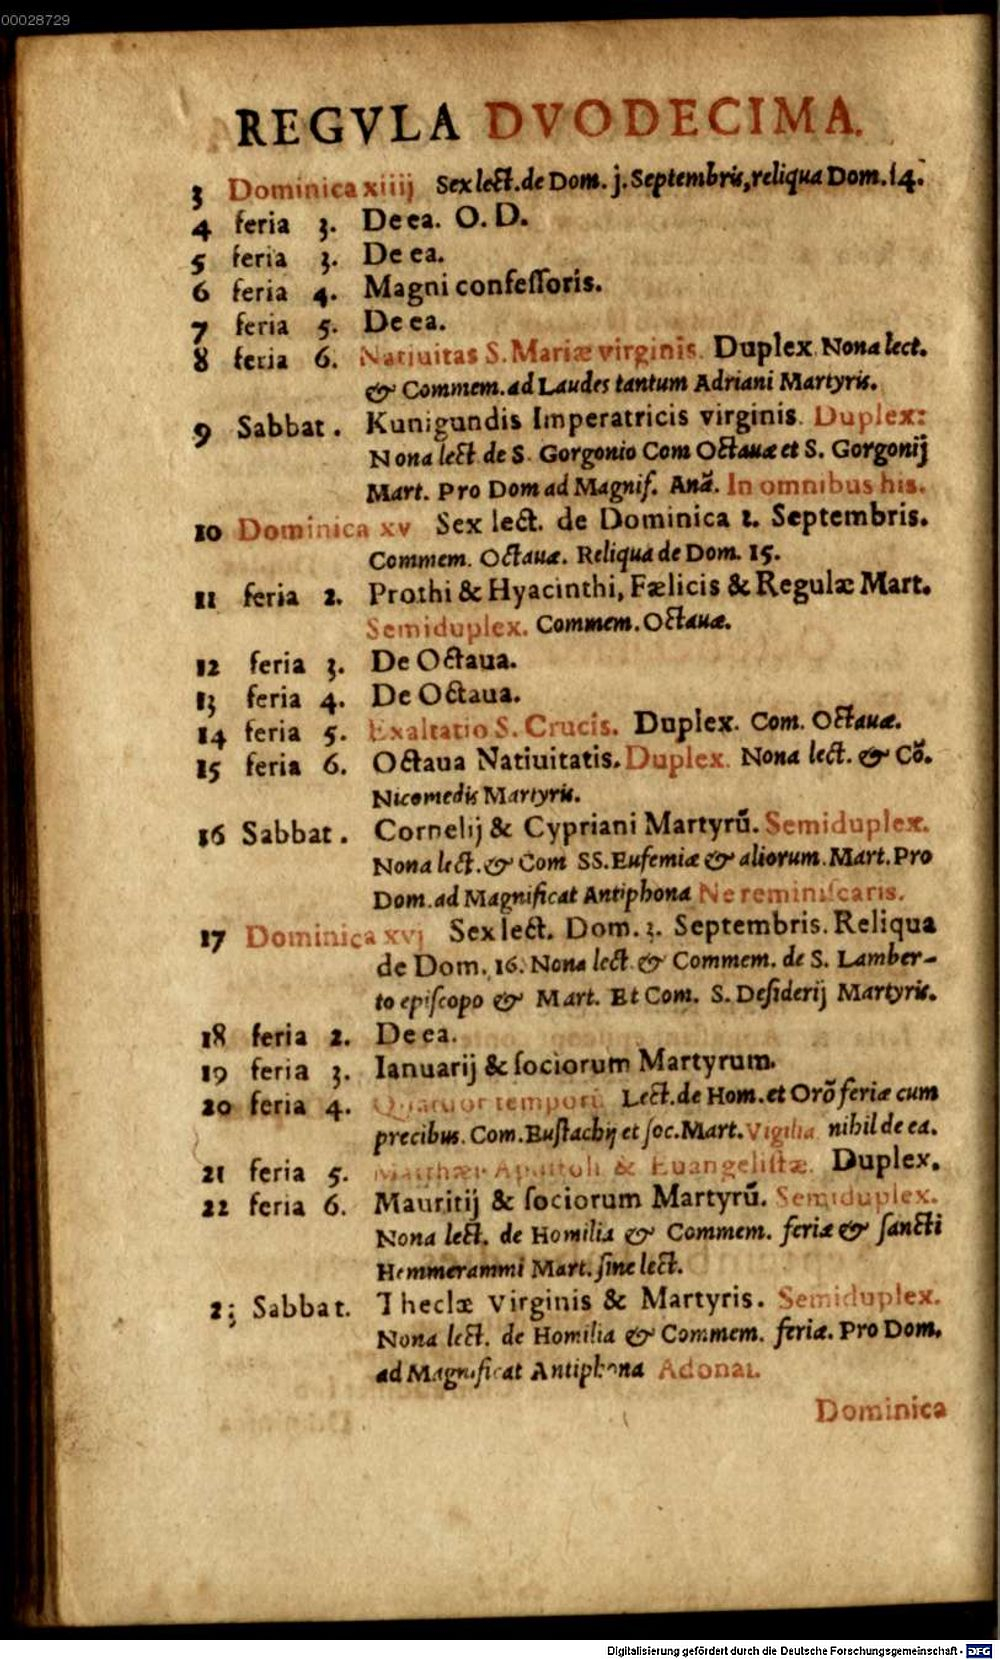 00028729
REGVLA DVODECIMA.
3 Dominica xiiij Sex lect. de Dom. j. Septembris, reliqua Dom. 14.
4 feria 3. De ea. O. D.
5 feria 3. De ea.
6 feria 4. Magni confeſſoris.
7 feria 5. De ea.
8 feria 6. Natiuitas S. Mariæ virginis. Duplex Nona lect.
& Commem. ad Laudes tantum Adriani Martyris.
9 Sabbat. Kunigundis Imperatricis virginis. Duplex:
Nona lect de S. Gorgonio Com Octauæ et S. Gorgonij
Mart. Pro Dom ad Magnif. Anã. In omnibus his.
10 Dominica xv Sex lect. de Dominica 2. Septembris.
Commem. Octauæ. Reliqua de Dom. 15.
11 feria 2. Prothi & Hyacinthi, Fælicis & Regulæ Mart.
Semiduplex. Commem. Octauæ.
12 feria 3. De Octaua.
13 feria 4. De Octaua.
14 feria 5. Exaltatio S. Crucis. Duplex. Com. Octauæ.
15 feria 6. Octaua Natiuitatis. Duplex. Nona lect. & Cõ.
Nicomedis Martyris.
16 Sabbat. Cornelij & Cypriani Martyrũ. Semiduplex.
Nona lect. & Com SS. Eufemiæ & aliorum. Mart. Pro
Dom. ad Magnificat Antiphona Ne reminiſcaris.
17 Dominica xvj Sex lect. Dom. 3. Septembris. Reliqua
de Dom. 16. Nona lect. & Commem. de S. Lamber-
to epiſcopo & Mart. Et Com. S. Deſiderij Martyris.
18 feria 2. De ea.
19 feria 3. Ianuarij & ſociorum Martyrum.
20 feria 4. Quatuor temporũ Lect. de Hom. et Orõ feriæ cum
precibus. Com. Euſtachij et ſoc. Mart. Vigilia nihil de ea.
21 feria 5. Matthæi Apoſtoli & Euangeliſtæ. Duplex.
22 feria 6. Mauritij & ſociorum Martyrũ. Semiduplex.
Nona lect. de Homilia & Commem. feriæ & ſancti
Hemmerammi Mart. ſine lect.
23 Sabbat. Theclæ Virginis & Martyris. Semiduplex.
Nona lect. de Homilia & Commem. feriæ. Pro Dom.
ad Magnificat Antiphona Adonai.
Dominica
Digitalisierung gefördert durch die Deutsche Forschungsgemeinschaft - DFG